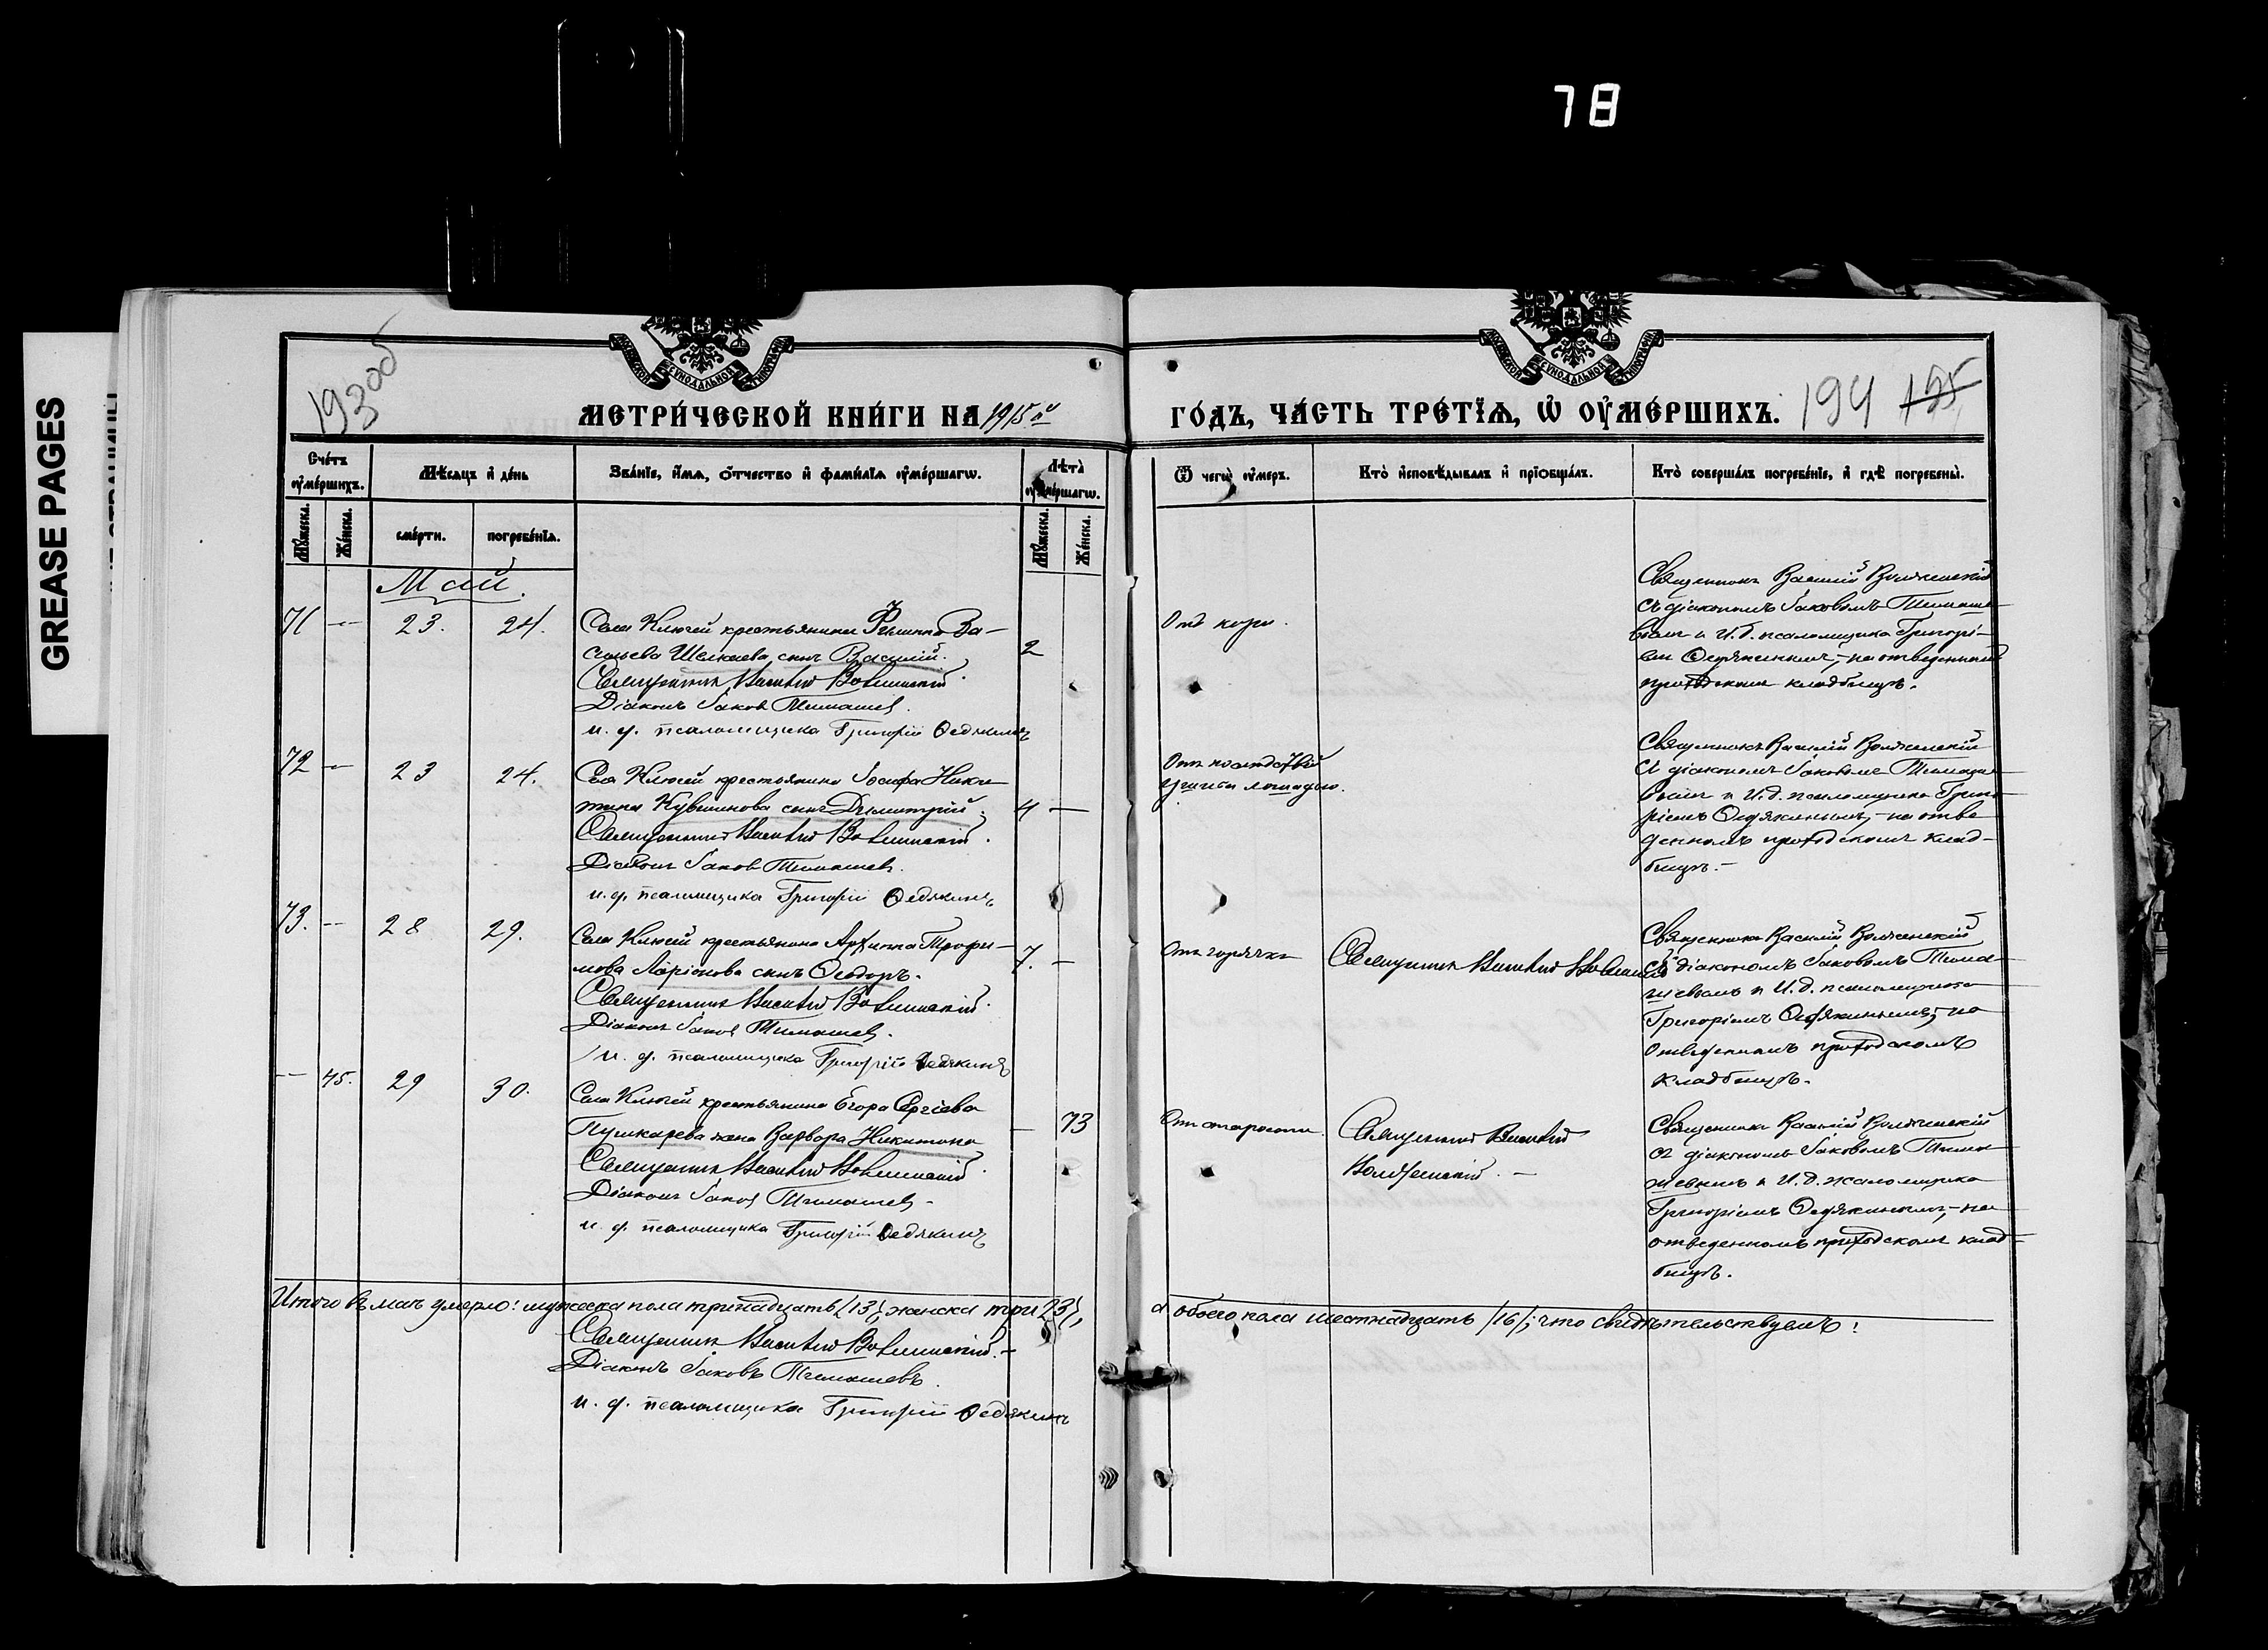 78
GREASE PAGES
193об
МЕТРИ́ЧЕСКОЙ КНИ́ГИ НА 1915й
ГО́ДЪ, ЧА́СТЬ ТРЕ́ТЇѦ, Ѽ ОУ҆МЕ́РШИХЪ.
194 195
Сче́тъ оу҆ме́ршихъ.
Мѣ́сѧцъ и҆ де́нь
Зва́нїе, и҆́мѧ, ѻ҆́тчество и҆ фами́лїѧ оу҆ме́ршагѡ.
Лѣ́та оу҆ме́ршагѡ.
Ѿ чегѡ̀ оу҆́меръ.
Кто̀ и҆сповѣ́дывалъ и҆ прїѡбща́лъ.
Кто̀ соверша́лъ погребе́нїе, и҆ гдѣ̀ погребены̀.
Мꙋ́жеска.
Же́нска.
сме́рти.
погребе́нїѧ.
Мꙋ́жеска.
Же́нска.
Май.
71 — 23. 24.
Села Ключей крестьянина Филиппа Ва-
сильева Щелкаева сынъ Василій.
2
Священникъ Василій Волженскій.
Діаконъ Іаковъ Тимашев.
и. д. псаломщика Григорій Ѳедякинъ
Отъ кори.
Священникъ Василій Волженскій
съ діакономъ Іаковомъ Тимаше-
вымъ и И. д. псаломщика Григорі-
емъ Ѳедякинымъ, – на отведенномъ
приходскомъ кладбищѣ.
72 — 23 24.
Села Ключей крестьянина Іосифа Ники-
тина Кувшинова сынъ Димитрій.
4 —
Священникъ Василій Волженскій.
Діаконъ Іаковъ Тимашев.
и. д. псаломщика Григорій Ѳедякинъ
Отъ послѣдствій
ушиба лошадью.
Священникъ Василій Волженскій
съ діакономъ Іаковомъ Тимаше-
вымъ и И. д. псаломщика Григо-
ріемъ Ѳедякинымъ, – на отве-
денномъ приходскомъ клад-
бищѣ. –
73. — 28 29.
Села Ключей крестьянина Архиппа Трофи-
мова Ларіонова сынъ Ѳеодоръ.
7. —
Священникъ Василій Волженскій.
Діаконъ Іаков Тимашев.
и. д. псаломщика Григорій Ѳедякинъ
Отъ горячки
Священникъ Василій Волженскій
Священникъ Василій Волженскій
съ діакономъ Іаковомъ Тима-
шевымъ и И. д. псаломщика
Григоріемъ Ѳедякинымъ, на
отведенномъ приходскомъ
кладбищѣ.
— 45. 29 30.
Села Ключей крестьянина Егора Сергіева
Пушкарева жена Варвара Никитина
— 73
Священникъ Василій Волженскій.
Діаконъ Іаков Тимашев
и. д. псаломщика Григорій Ѳедякинъ
Отъ старости.
Священникъ Василій
Волженскій. –
Священникъ Василій Волженскій
съ діакономъ Іаковомъ Тима-
шевымъ и И. д. псаломщика
Григоріемъ Ѳедякинымъ, – на
отведенномъ приходскомъ клад-
бищѣ.
Итого въ маѣ умерло: мужеска пола тринадцать /13/, женска три /3/,
а обоего пола шестнадцать /16/; что свидѣтельствуемъ:
Священникъ Василій Волженскій. –
Діаконъ Іаковъ Тимашевъ.
и. д. псаломщика Григорій Ѳедякинъ